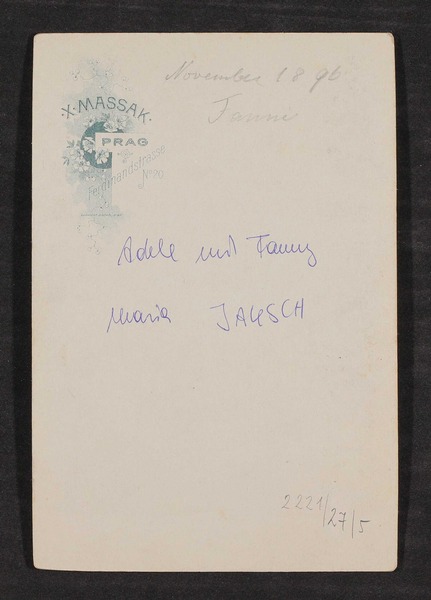 November 1896
Fanni
X. MASSAK.
PRAG
Ferdinandstrasse
No 20.
Adele mit Fanny
Maria JAKSCH
2221/27/5